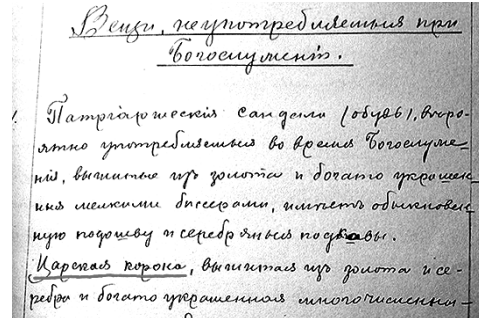 Вещи, неупотребляемыя при
Богослуженіи.
Патріаршескія сандали (обувь), вѣро-
ятно употребляемыя во время Богослуже-
нія, вышитые изъ золота и богато украшен-
ныя мелкими бисерами, имѣетъ обыкновен
ную подошву и серебряныя подковы.
Царская корона, вышитая изъ золота и се-
ребра и богато украшенная многочисленны-